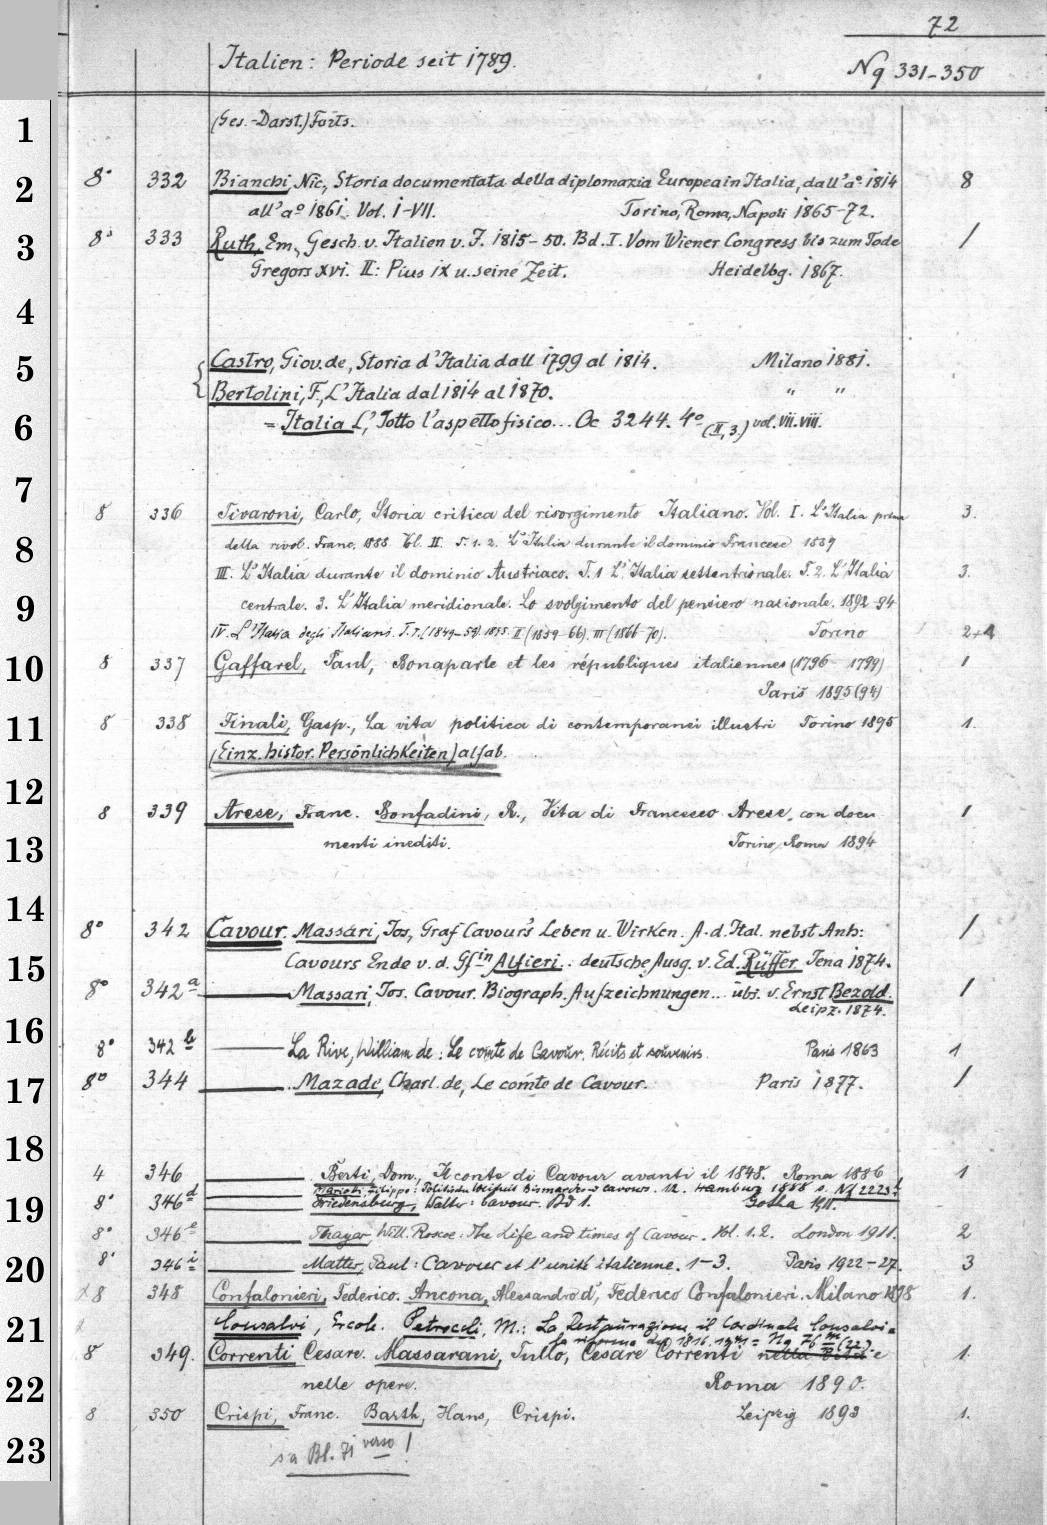 72
Italien: Periode seit 1789.
Nq 331-350
1
(Ges.-Darst.) Forts.
2
8° 332 Bianchi, Nic., Storia documentata della diplomazia Europea in Italia, dall'a° 1814 8
all'a° 1861. Vol. I-VII. Torino, Roma, Napoli 1865-72.
3
8° 333 Ruth, Em., Gesch. v. Italien v. J. 1815-50. Bd. I. Vom Wiener Congress bis zum Tode 1
Gregors XVI. II: Pius IX u. seine Zeit. Heidelbg. 1867.
4
5
Castro, Giov. de, Storia d'Italia dall 1799 al 1814. Milano 1881.
Bertolini, F., L'Italia dal 1814 al 1870. " "
6
= Italia L', Sotto l'aspetto fisico... Oc 3244. 4° (II,3.) vol. VII. VIII.
7
8 336 Tivaroni, Carlo, Storia critica del risorgimento Italiano. Vol. I. L'Italia prima 3.
8
della rivol. Franc. 1888. Vl. II. T. 1. 2. L'Italia durante il dominio Francese 1889
III. L'Italia durante il dominio Austriaco. T. 1 L'Italia settentrionale. T. 2. L'Italia 3.
9
centrale. 3. L'Italia meridionale. Lo svolgimento del pensiero nazionale. 1892-94
IV. L'Italia degli Italiani. T. I. (1849-59) 1895. II (1859-66). III (1866-70). Torino 2+1
10
8 337 Gaffarel, Paul, Bonaparte et les républiques italiennes (1796-1799) 1
Paris 1895 (94)
11
8 338 Finali, Gasp., La vita politica di contemporanei illustri Torino 1895 1.
(Einz. histor. Persönlichkeiten) alfab.
12
8 339 Arese, Franc. Bonfadini, R., Vita di Francesco Arese, con docu 1
13
menti inediti. Torino, Roma 1894
14
8° 342 Cavour. Massari, Jos, Graf Cavour's Leben u. Wirken. A. d. Ital. nebst Anh: 1
15
Cavours Ende v. d. Gfin Alfieri.. deutsche Ausg. v. Ed. Rüffer Jena 1874.
8° 342a Massari, Jos. Cavour. Biograph. Aufzeichnungen... übs. v. Ernst Bezold. 1
Leipz. 1874.
16
8° 342b La Rive, William de: Le comte de Cavour. Récits et souvenirs. Paris 1863 1
17
8° 344 Mazade, Charl. de, Le comte de Cavour. Paris 1877. 1
18
4 346 Berti, Dom., Il conte di Cavour avanti il 1848. Roma 1886 1
Mariotti, Filippo: Politische Weisheit Bismarcks u Cavour. Hamburg 1888 s. Nf 2223
19
8° 346d Friedensburg, Walter: Cavour. Bd 1. Gotha 1911.
8° 346e Thayer, Will. Roscoe: The Life and times of Cavour. Vol. 1. 2. London 1911. 2
20
8° 346i Matter, Paul: Cavour et l'unité italienne. 1-3. Paris 1922-27. 3
8 348 Confalonieri, Federico. Ancona, Alessandro d', Federico Confalonieri. Milano 1898 1.
21
Consalvi, Ercole. Petrocchi, M.: La Restaurazione il Cardinale Consalvi e
la riforma del 1816. 1941 = Nq 76 m (22).
8 349. Correnti Cesare. Massarani, Tullo, Cesare Correnti nella vita e 1.
22
nelle opere. Roma 1890.
8 350 Crispi, Franc. Barth, Hans, Crispi. Leipzig 1893 1.
23
s a Bl. 71 verso!